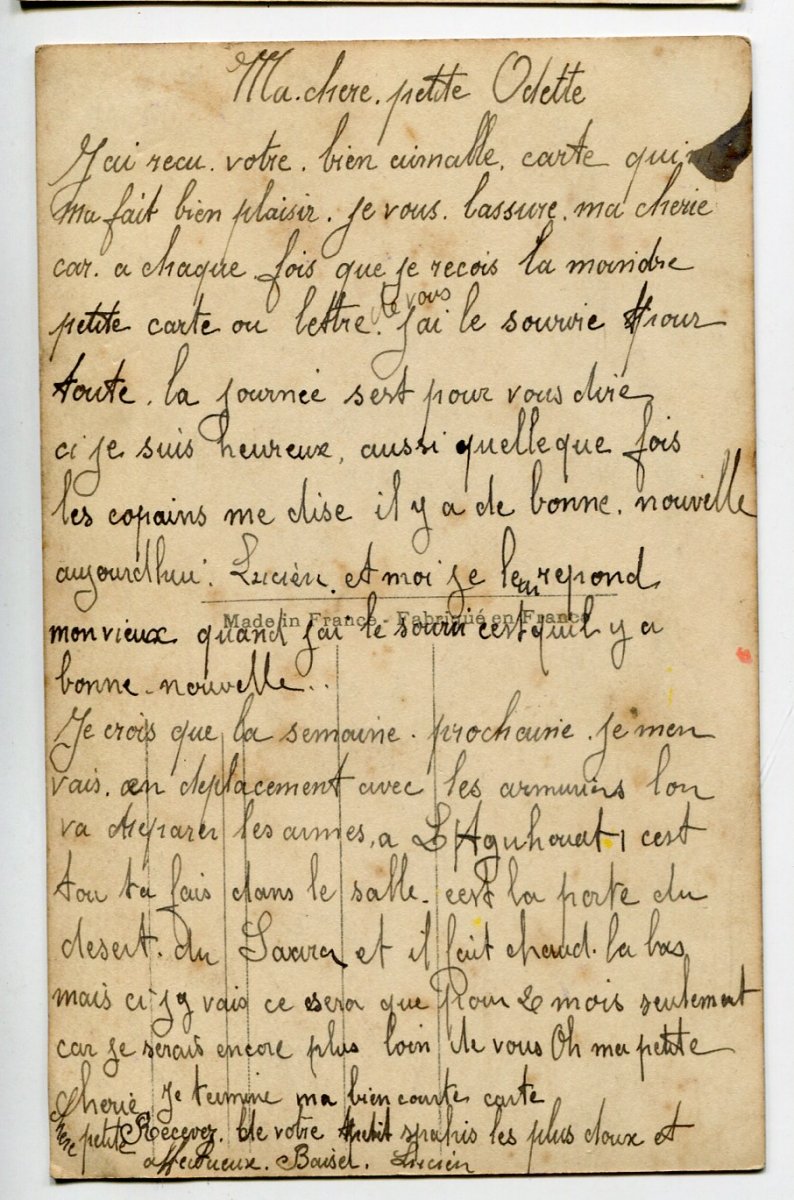 Ma chere petite Odette
J'ai recu. votre. bien aimalle. carte qui
ma fait bien plaisir. je vous. lassure. ma cherie
car. a chaque fois que je recois la moindre
je vous
petite carte ou lettre. j'ai le sourire pour
toute. la journée sest pour vous dire
ci je suis heureux, aussi quelleque fois
les copains me dise il y a de bonne. nouvelle
aujourdhui. Lucien. et moi je leur repond
Made in France - Fabriqué en France
mon vieux quand j'ai le sourir cest quil y a
bonne nouvelle..
Je crois que la semaine. prochaine. je men
vais. en deplacement avec les armuriers lon
va reparer les armes, a L'Aguhouat, cest
tou ta fais dans le salle. cest la porte du
desert. du Saara et il fait chaud. la bas
mais ci jy vais ce sera que Pour 2 mois seulement
car je serais encore plus loin de vous Oh ma petite
cherie, je termine ma bien courte carte
chere petite Recevez. de votre petit spahis les plus doux et
affectueux. Baiser. Lucien